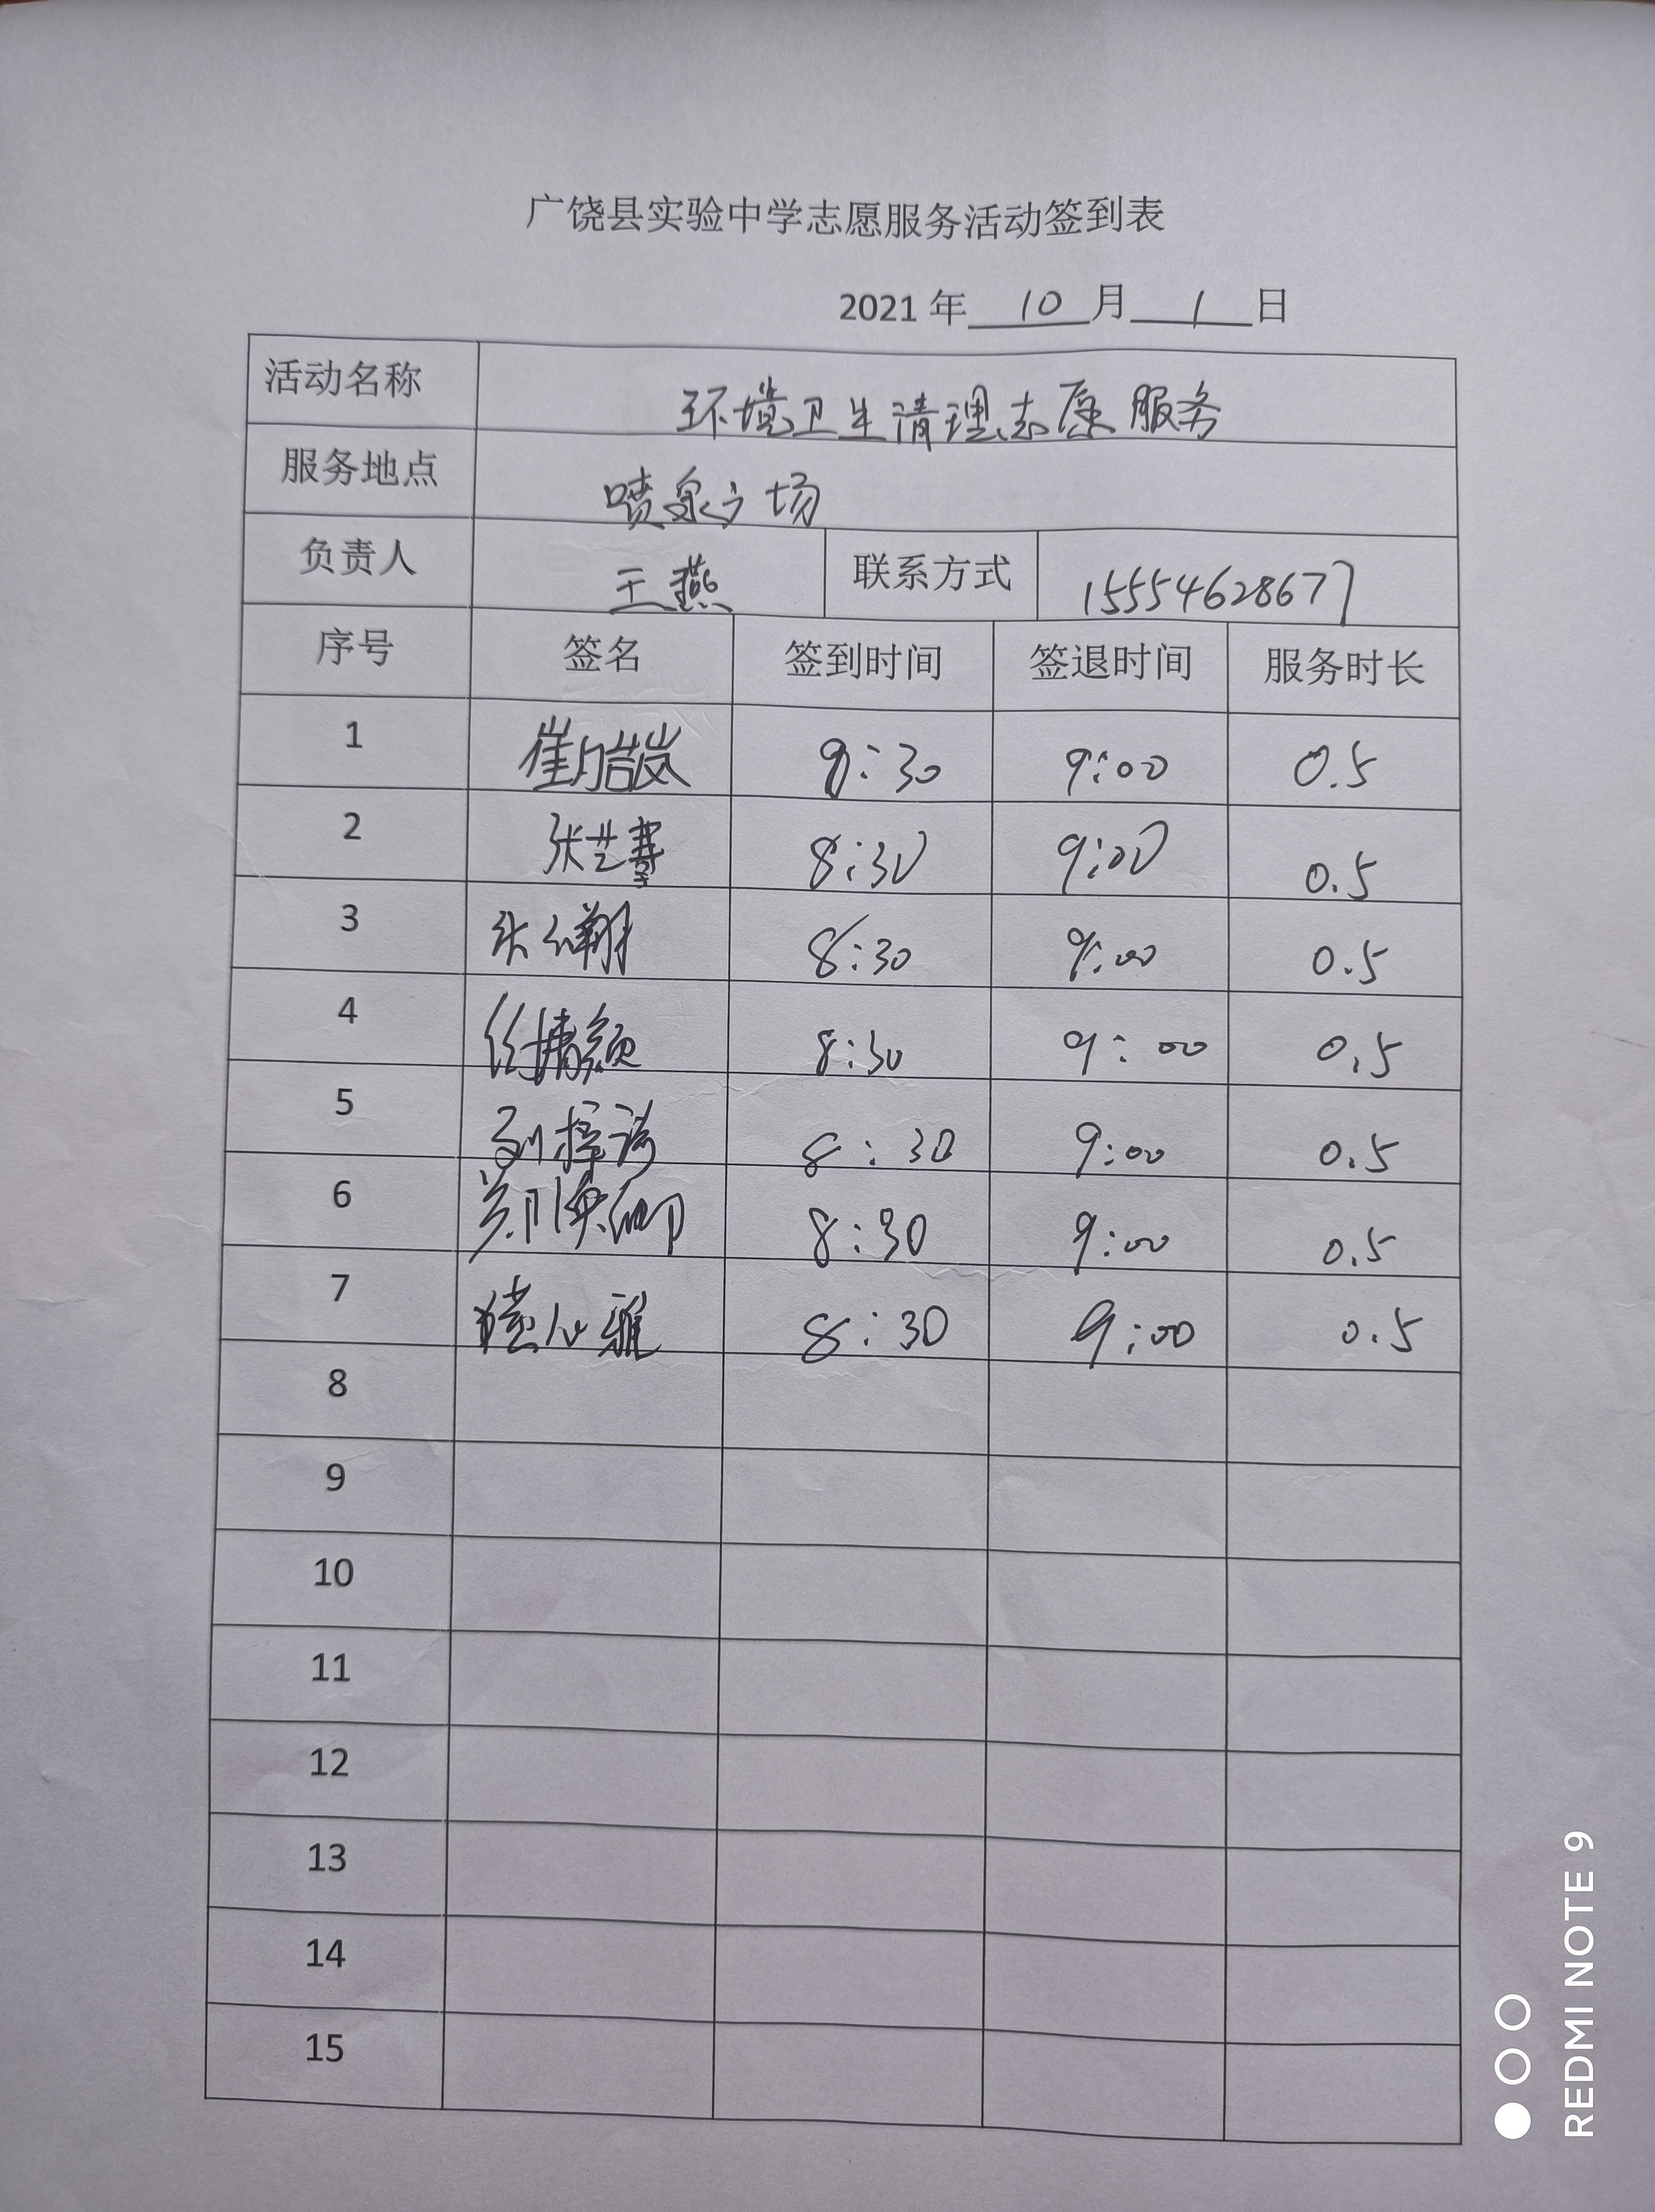 广饶县实验中学志愿服务活动签到表
2021 年 10 月 1 日
活动名称 环境卫生清理志愿服务
服务地点 喷泉广场
负责人 王燕 联系方式 15554628677
序号 签名 签到时间 签退时间 服务时长
1 崔 8:30 9:00 0.5
2 张艺 8:30 9:00 0.5
3 张 翔 8:30 9:00 0.5
4 任 颜 8:30 9:00 0.5
5 刘梓诺 8:30 9:00 0.5
6 8:30 9:00 0.5
7 心雅 8:30 9:00 0.5
8
9
10
11
12
13
14
15
REDMI NOTE 9